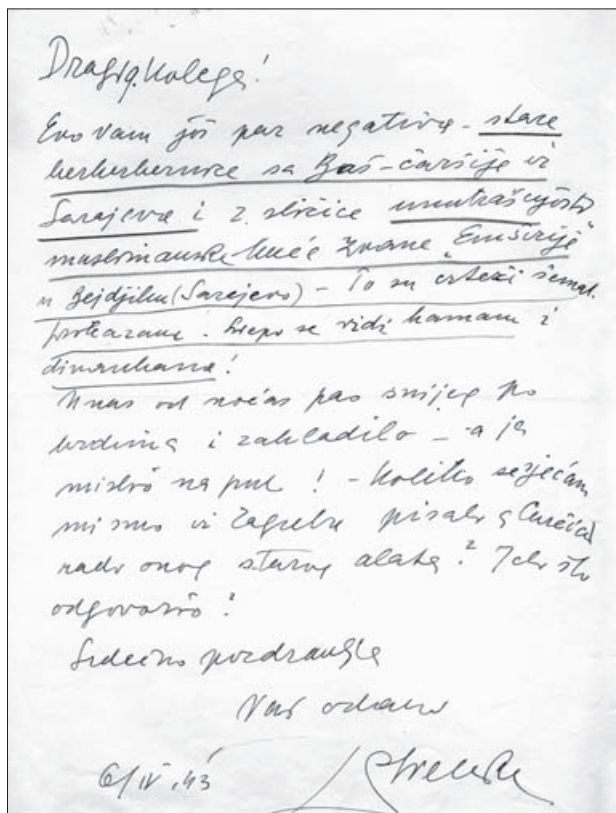 Dragi g. Kolega!
Evo vam još par negativa - stare
berberbernice sa Baš-čaršije iz
Sarajeva i 2. sličice unutrašnjosti
muslimanske kuće zvane "Emširije"
u Bejdjiku (Sarajevo) - To su crteži šemat.
prokazani. Lepo se vidi hamam i
divanhana!
Unas od noćas pao snijeg po
brdima i zahladilo - a ja
mislio na put! - Koliko se sjećam
mi smo iz Zagreba pisali g. Ćurčić
radi onog starog alata? Jeli što
odgovorio?
Srdečno pozdravlja
Vaš odani
6/IV.43